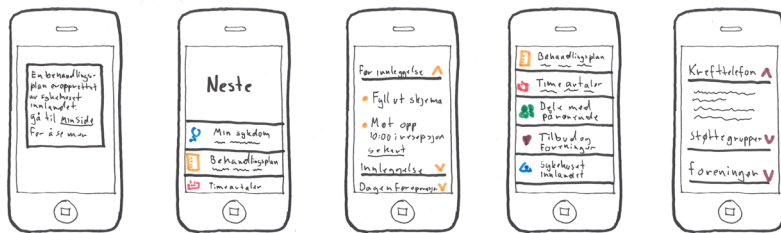 En behandlings-
plan er opprettet
av sykehuset
innlandet
gå til MinSide
For å se mer
Neste
Min sykdom
Behandlingsplan
Timeavtaler
Før innleggelse
Fyll ut skjema
Møt opp
10:00 i resepsjon
se kart
Innleggelse
Dagen før operasjon
Behandlingsplan
Timeavtaler
Dele med
pårørende
Tilbud og
Foreninger
Sykehuset
innlandet
Krefttelefon
støttegrupper
foreninger